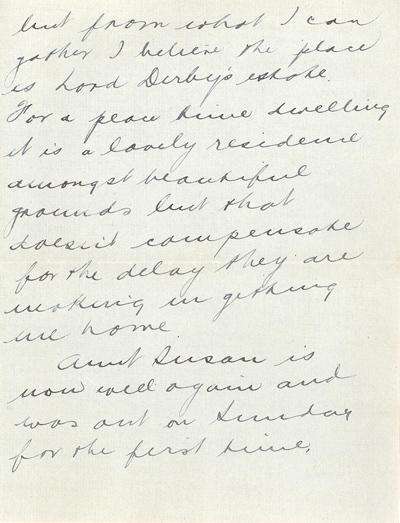 but from what I can
gather I believe the place
is Lord Derby's estate.
For a peace time dwelling
it is a lovely residence
amongst beautiful
grounds but that
doesn't compensate
for the delay they are
making in getting
me home.
Aunt Susan is
now well again and
was out on Sunday
for the first time.